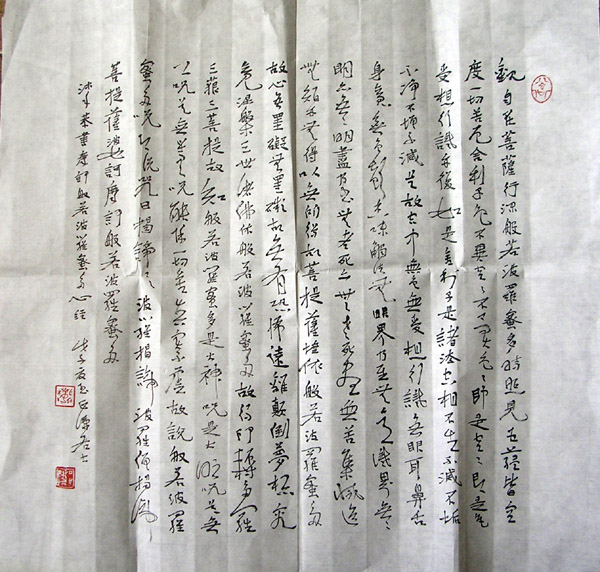 观自在菩薩行深般若波羅蜜多時照見五蕴皆空
度一切苦厄舍利子色不異空空不異色色即是空空即是色
受想行識亦復如是舍利子是諸法空相不生不滅不垢
不净不增不減是故空中無色無受想行識無眼耳鼻舌
身意無色聲香味觸法無眼界乃至無意識界無無
明亦無無明盡乃至無老死亦無老死盡無苦集滅道
無智亦無得以無所得故菩提薩埵依般若波羅蜜多
故心無罣礙無罣礙故無有恐怖遠離顛倒夢想究
竟涅槃三世諸佛依般若波羅蜜多故得阿耨多羅
三藐三菩提故知般若波羅蜜多是大神咒是大明咒是無
上咒是無等等咒能除一切苦真實不虛故說般若波羅
蜜多咒即說咒曰揭諦揭諦波羅揭諦波羅僧揭諦
菩提薩婆訶摩訶般若波羅蜜多
沐手恭書摩訶般若波羅蜜多心經 戊子